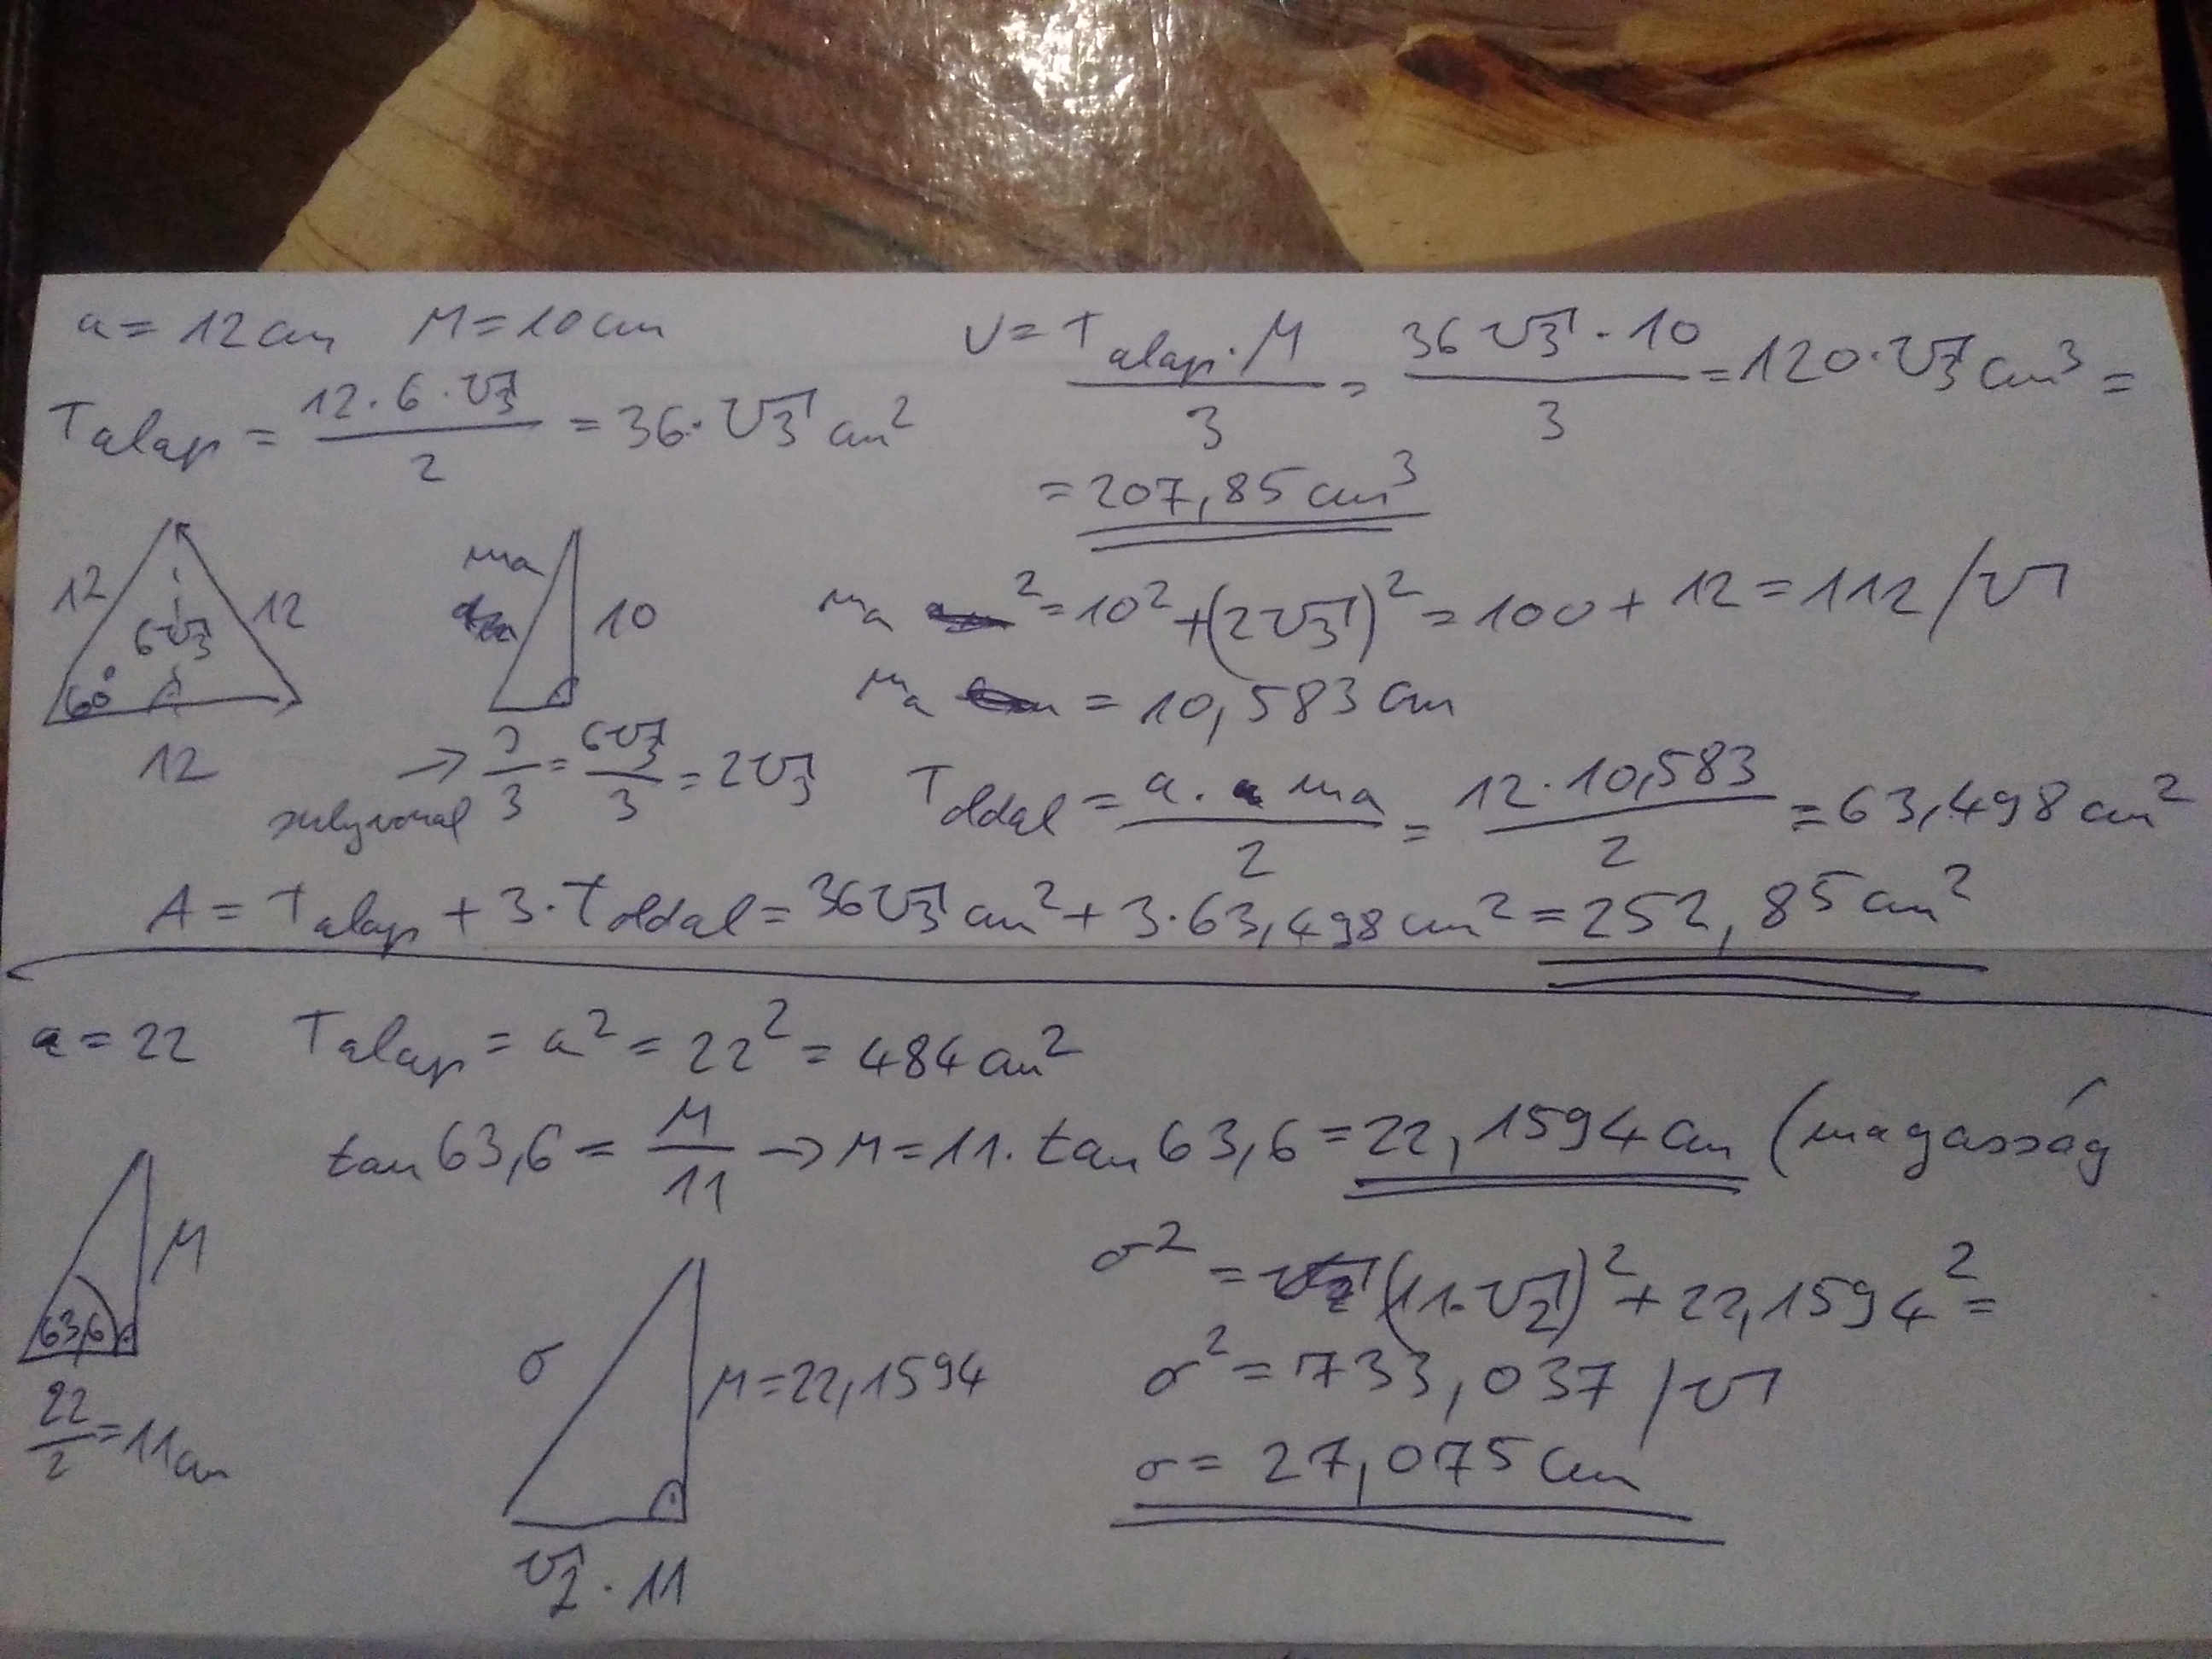 a = 12 cm M = 10 cm
T alap = 12 · 6 · √3 / 2 = 36 · √3 cm²
V = T alap · M / 3 = 36√3 · 10 / 3 = 120 · √3 cm³ =
= 207,85 cm³
12 6√3 12 60° 12
ma 10
→ súlyvonal / 3 = 6√3 / 3 = 2√3
ma² = 10² + (2√3)² = 100 + 12 = 112 /√
ma = 10,583 cm
T oldal = a · ma / 2 = 12 · 10,583 / 2 = 63,498 cm²
A = T alap + 3 · T oldal = 36√3 cm² + 3 · 63,498 cm² = 252,85 cm²
a = 22 T alap = a² = 22² = 484 cm²
tan 63,6 = M / 11 → M = 11 · tan 63,6 = 22,1594 cm (magasság
M 63,6
22 / 2 = 11 cm
σ M = 22,1594
√2 · 11
σ² = (11 · √2)² + 22,1594² =
σ² = 733,037 /√
σ = 27,075 cm